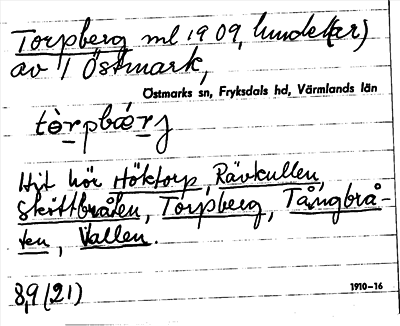 Torpberg ml 1909, hundel(ar)
av 1 Östmark,
Östmarks sn, Fryksdals hd, Värmlands län
tòrpbærj
Hit hör Höktorp, Rävkullen,
Skättbråten, Torpberg, Tångbrå-
ten, Vallen.
8,9 (21)
1910-16